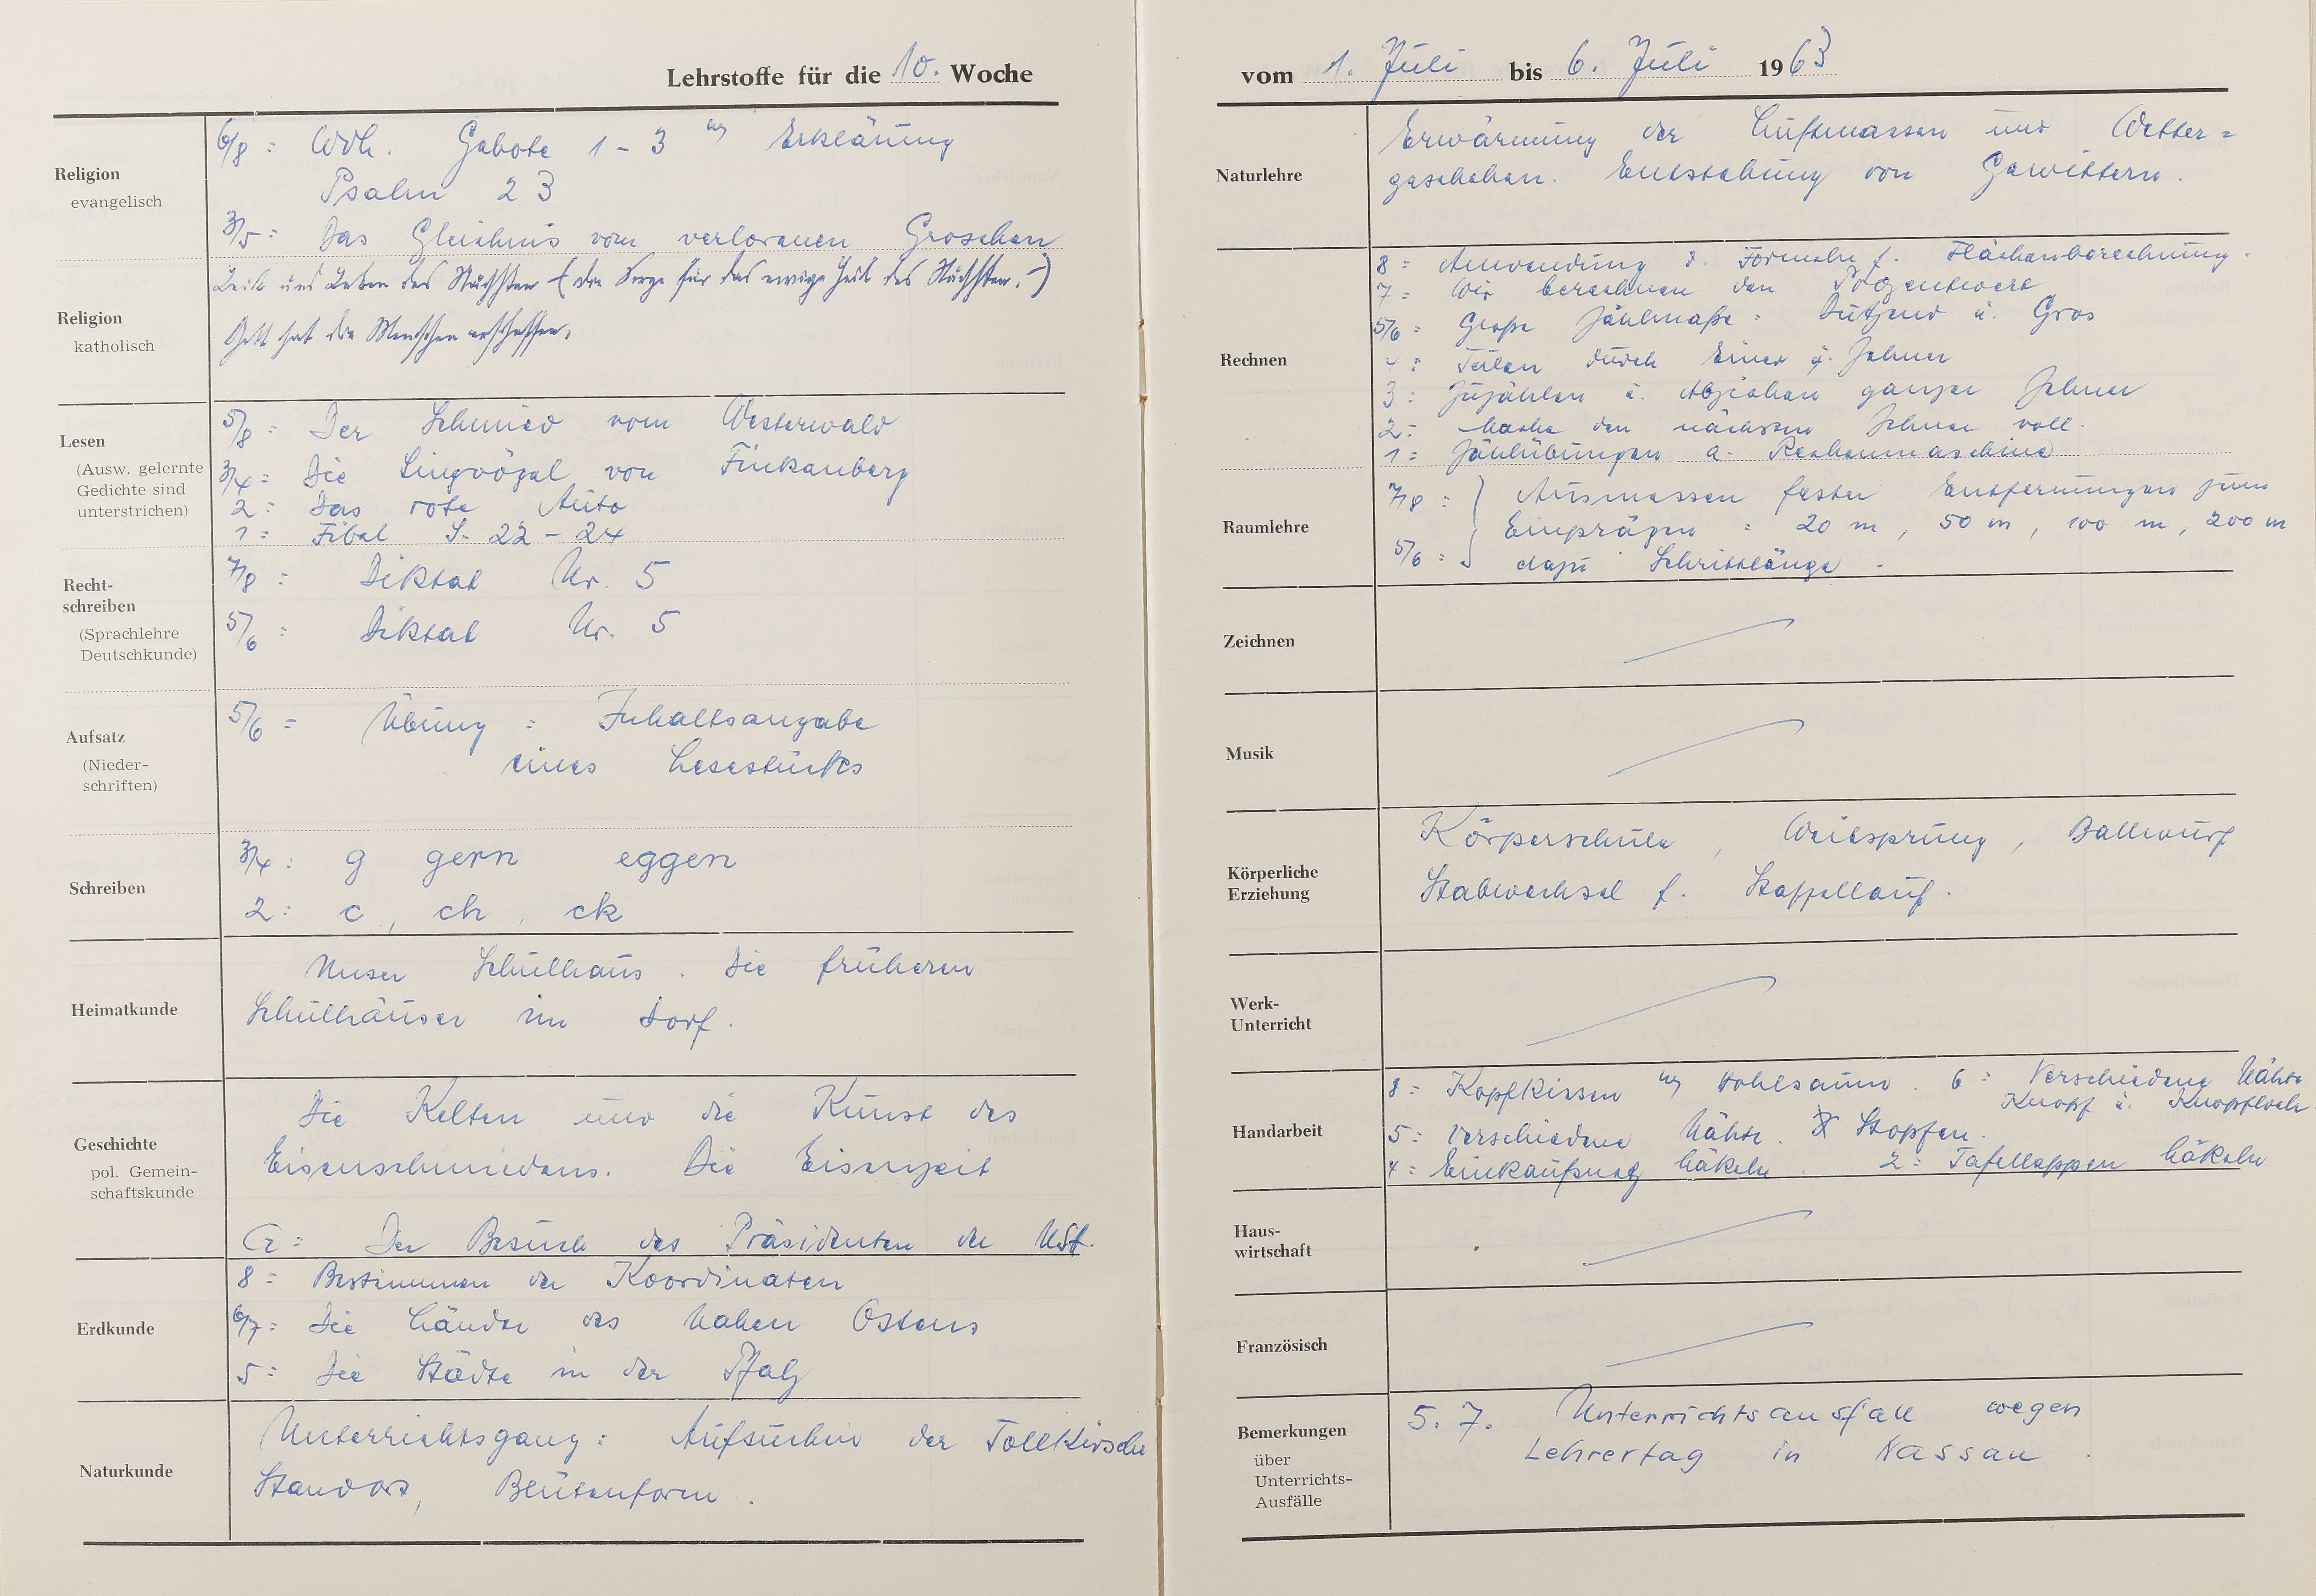 Lehrstoffe für die 10. Woche
Religion
evangelisch
6/8 : Wdh. Gebote 1 - 3 m Erklärung
Psalm 23
3/5 : Das Gleichnis vom verlorenen Groschen
Religion
katholisch
Leib und Leben des Nächsten (die Sorge für das ewige Heil des Nächsten.-)
Gott hat die Menschen erschaffen.
Lesen
(Ausw. gelernte
Gedichte sind
unterstrichen)
5/8 : Der Schmied vom Westerwald
3/4 : Die Singvögel von Finkenberg
2 : Das rote Auto
1 : Fibel S. 22 - 24
Recht-
schreiben
(Sprachlehre
Deutschkunde)
7/8 : Diktat Nr. 5
5/6 : Diktat Nr. 5
Aufsatz
(Nieder-
schriften)
5/6 : Übung : Inhaltsangabe
eines Lesestücks
Schreiben
3/4 : g gern eggen
2 : c, ch, ck
Heimatkunde
Unser Schulhaus. Die früheren
Schulhäuser im Dorf.
Geschichte
pol. Gemein-
schaftskunde
Die Kelten und die Kunst des
Eisenschmiedens. Die Eisenzeit
G : Der Besuch des Präsidenten der USA.
Erdkunde
8 : Bestimmen der Koordinaten
6/7 : Die Länder des Nahen Ostens
5 : Die Städte in der Pfalz
Naturkunde
Unterrichtsgang : Aufsuchen der Tollkirsche
Standort, Blütenform.
vom 1. Juli bis 6. Juli 1963
Naturlehre
Erwärmung der Luftmassen und Wetter=
geschehen. Entstehung von Gewittern.
Rechnen
8 : Anwendung d. Formeln f. Flächenberechnung.
7 : Wir berechnen den Prozentwert
5/6 : Große Zählmaße : Dutzend u. Gros
4 : Teilen durch Einer u. Zehner
3 : Zuzählen u. Abziehen ganzer Zehner
2 : Mache den nächsten Zehner voll.
1 : Zählübungen a. Rechenmaschine
Raumlehre
7/8 : Ausmessen fester Entfernungen zum
Einprägen : 20 m, 50 m, 100 m, 200 m
5/6 : dazu Schrittlänge.
Zeichnen
Musik
Körperliche
Erziehung
Körperschule, Weitsprung, Ballwurf
Stabwechsel f. Staffellauf.
Werk-
Unterricht
Handarbeit
8 : Kopfkissen m Hohlsaum. 6 : Verschiedene Nähte
Knopf u. Knopfloch
5 : Verschiedene Nähte. Stopfen.
4 : Einkaufsnetz häkeln. 2 : Tafellappen häkeln
Haus-
wirtschaft
Französisch
Bemerkungen
über
Unterrichts-
Ausfälle
5. 7. Unterrichtsausfall wegen
Lehrertag in Nassau.